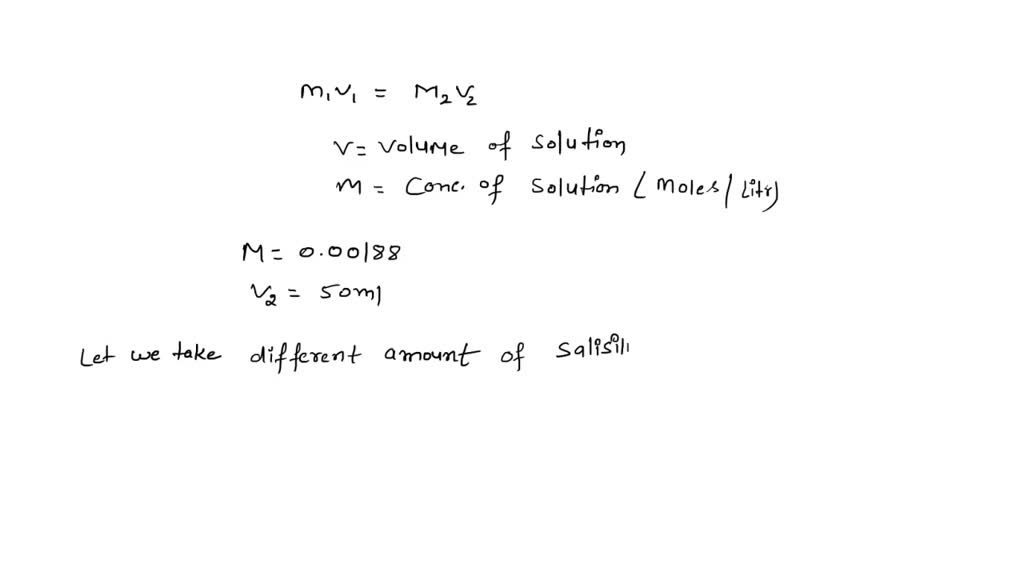 m₁v₁ = M₂V₂
V = Volume of solution
M = Conc. of solution (moles/Litr)
M = 0.00188
V₂ = 50ml
Let we take different amount of Salisili